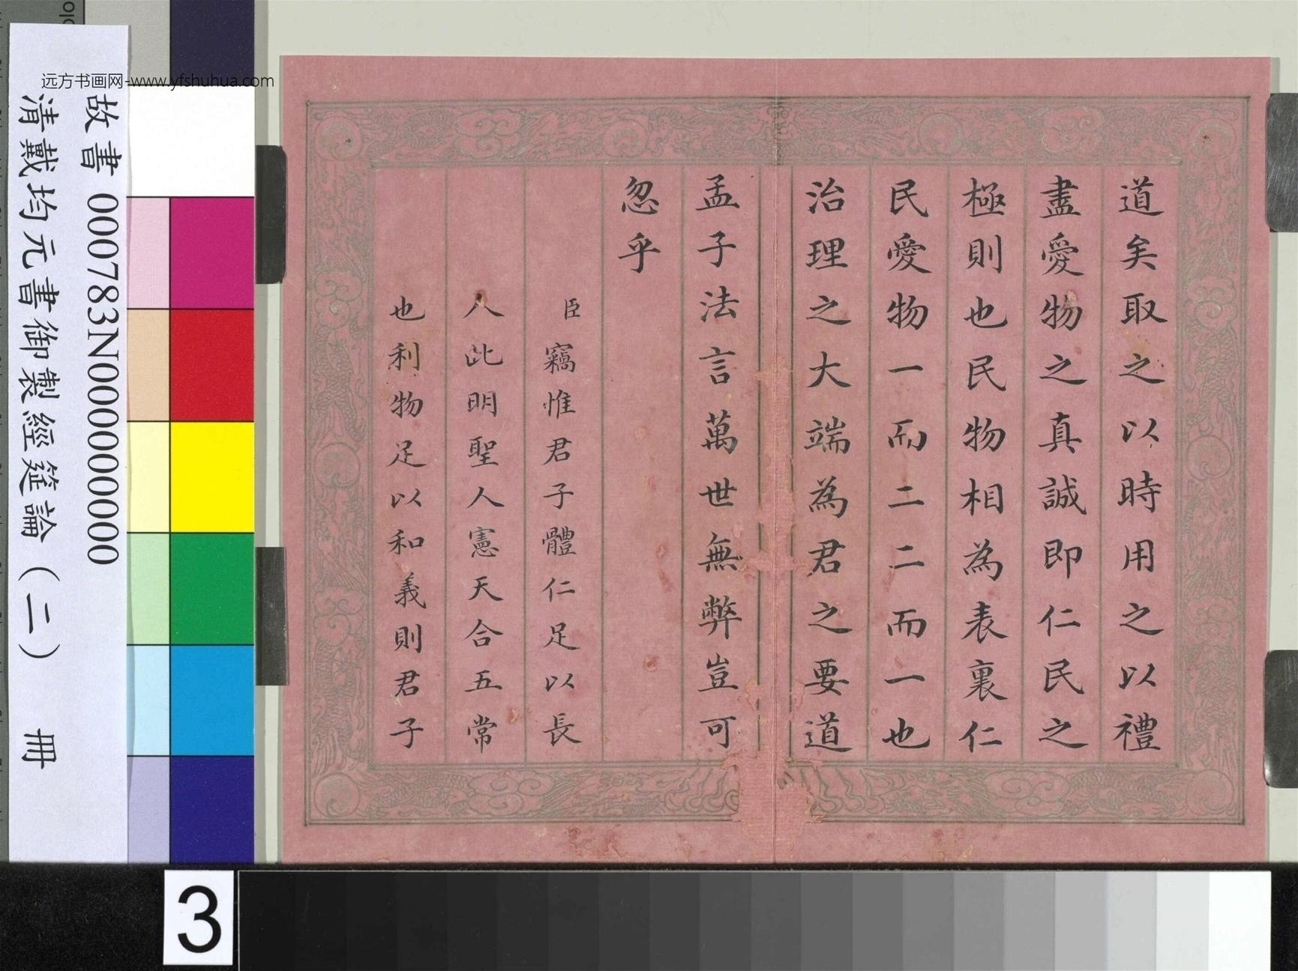 道矣取之以時用之以禮
盡愛物之真誠即仁民之
極則也民物相為表裏仁
民愛物一而二二而一也
治理之大端為君之要道
孟子法言萬世無弊豈可
忽乎
臣竊惟君子體仁足以長
人此明聖人憲天合五常
也利物足以和義則君子
故書 000783N000000000
清戴均元書御製經筵論(二) 冊
远方书画网-www.yfshuhua.com
3